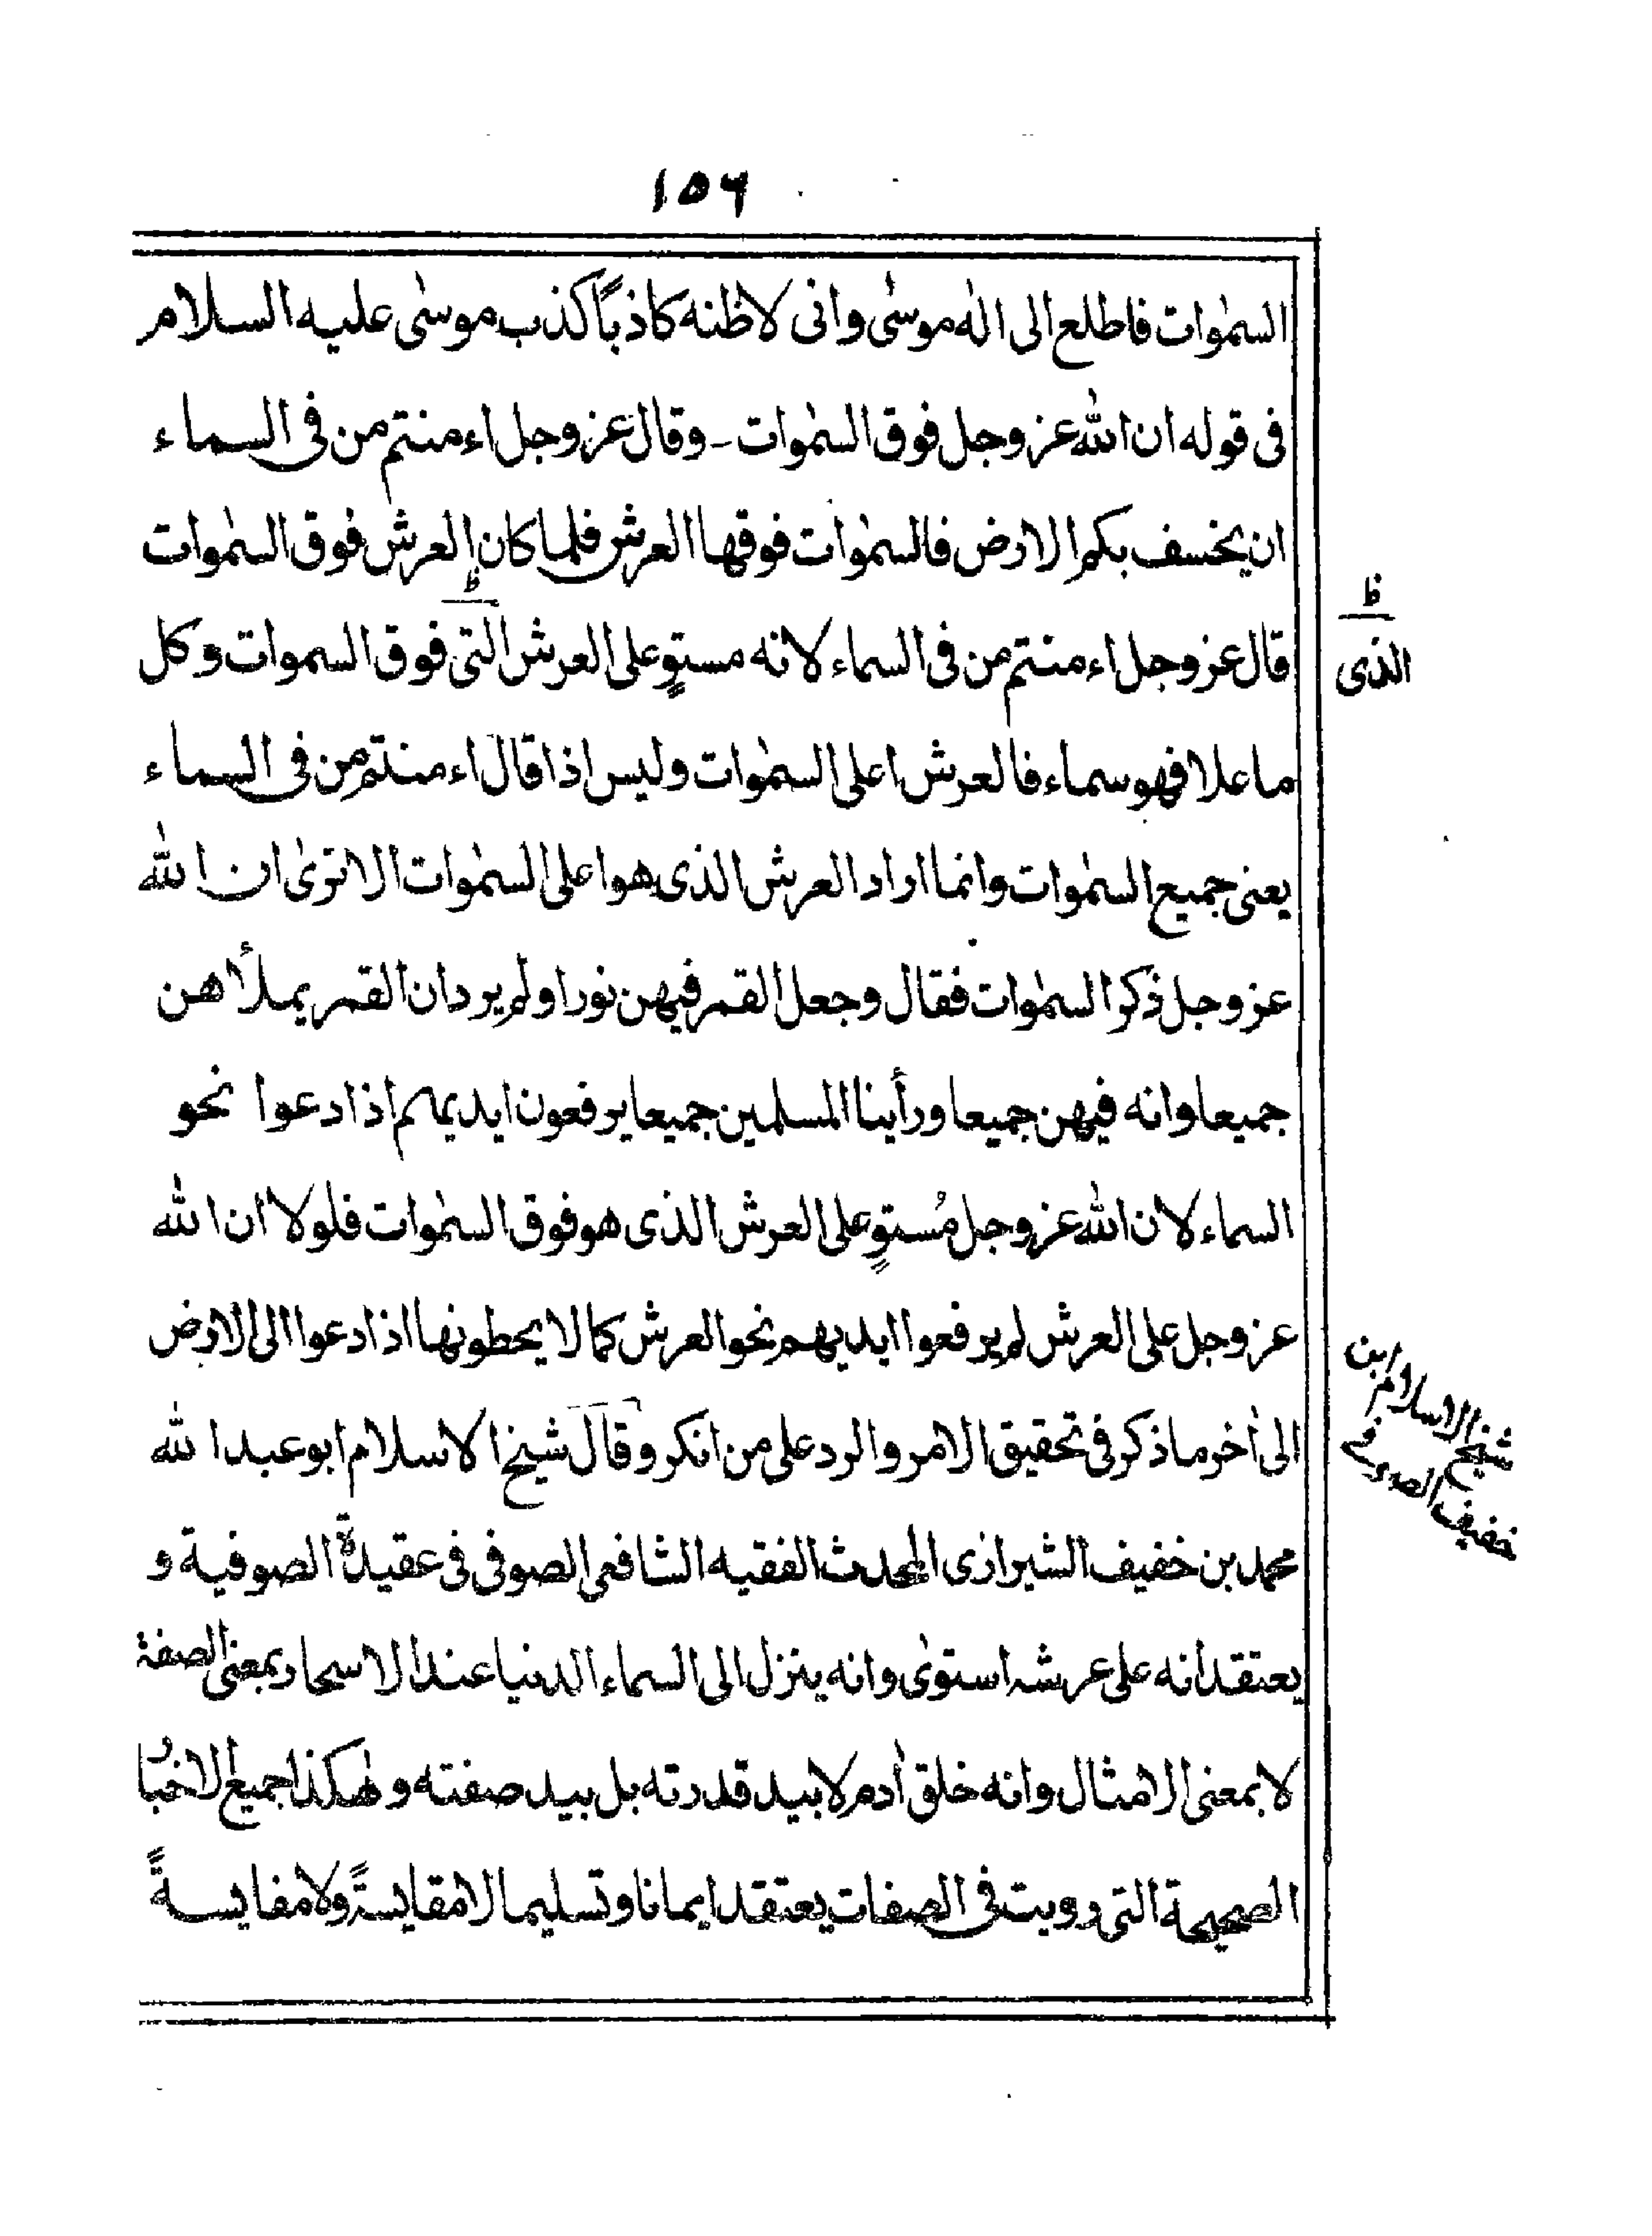 ۱۵۶
السمٰوات فاطلع الى الٰه موسٰى وانى لاظنه كاذبًا كذب موسٰى عليه السلام
فى قوله ان الله عز وجل فوق السمٰوات ـ وقال عز وجل اءمنتم من فى السماء
ان يخسف بكم الارض فالسمٰوات فوقها العرش فلما كان العرش فوق السمٰوات
قال عز وجل اءمنتم من فى السماء لانه مستوٍ على العرش التى فوق السموات وكل
ما علا فهو سماء فالعرش اعلى السمٰوات وليس اذا قال اءمنتم من فى السماء
يعنى جميع السمٰوات وانما اراد العرش الذى هو اعلى السمٰوات الا ترىٰ ان الله
عز وجل ذكر السمٰوات فقال وجعل القمر فيهن نورا ولم يرد ان القمر يملأهن
جميعا وانه فيهن جميعا ورأينا المسلمين جميعا يرفعون ايديهم اذا دعوا نحو
السماء لان الله عز وجل مُستوٍ على العرش الذى هو فوق السمٰوات فلولا ان الله
عز وجل على العرش لم يرفعوا ايديهم نحو العرش كما لا يحطونها اذا دعوا الى الارض
الىٰ اٰخر ما ذكر فى تحقيق الامر والرد على من انكر وقال شيخ الاسلام ابو عبد الله
محمد بن خفيف الشيرازى المحدث الفقيه الشافعى الصوفى فى عقيدة الصوفية و
يعتقد انه على عرشه استوىٰ وانه ينزل الى السماء الدنيا عند الاسحار بمعنى الصفة
لا بمعنى الامثال وانه خلق اٰدم لا بيد قدرته بل بيد صفته وهٰكذا جميع الاخبار
الصحيحة التى رويت فى الصفات يعتقد ايمانا وتسليما لا مقايسةً ولا مفايسةً
ظ
الذى
شيخ الاسلام ابن
خفيف الصوفى